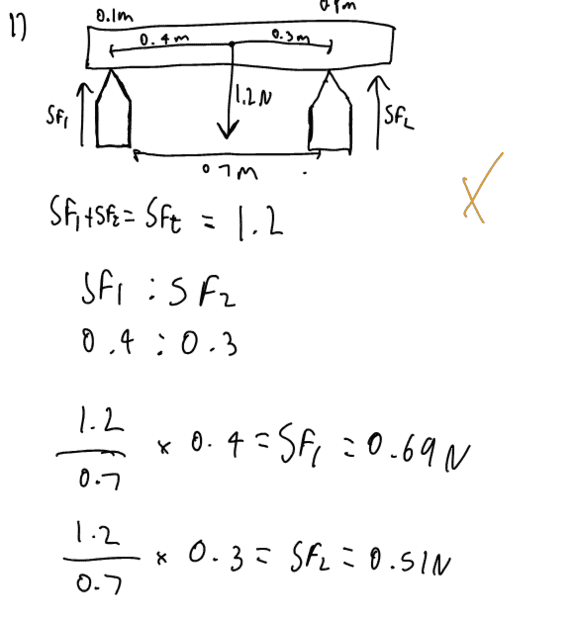 1)
0.1m
0.4m 0.3m
1.2N
SF1 SF2
0.7m
SF1+SF2= SFt = 1.2
SF1 : SF2
0.4 : 0.3
1.2
0.7 × 0.4 = SF1 = 0.69N
1.2
0.7 × 0.3 = SF2 = 0.51N